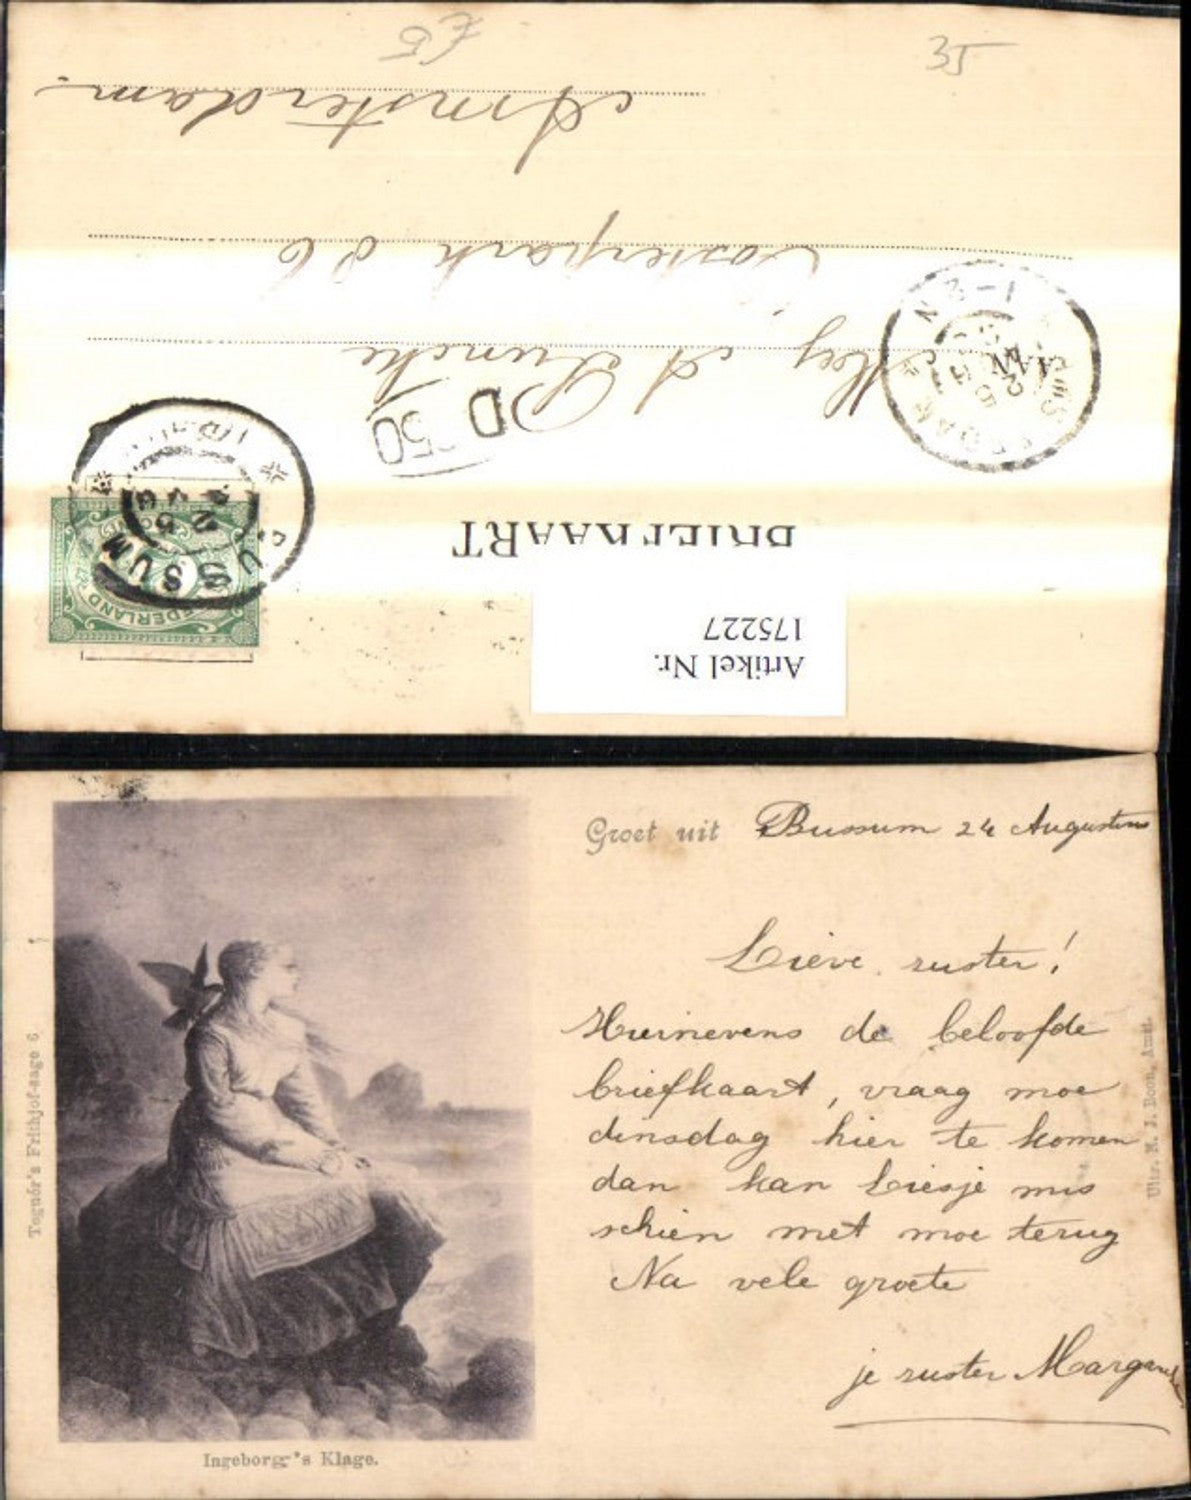 £5
35
Amsterdam.
Oosterpark 86
Mej. A Luncke
50
BRIEFKAART
BUSSUM
NEDERLAND
Artikel Nr.
175227
Groet uit Bussum 24 Augustus
Lieve suster!
Hiernevens de beloofde
briefkaart, vraag moe
dinsdag hier te komen
dan kan Liesje mis
schien met moe terug
Na vele groete
je suster
Tegnér's Frithjof-sage 6
Ingeborg's Klage.
Uitg. N. J. Boon, Amst.